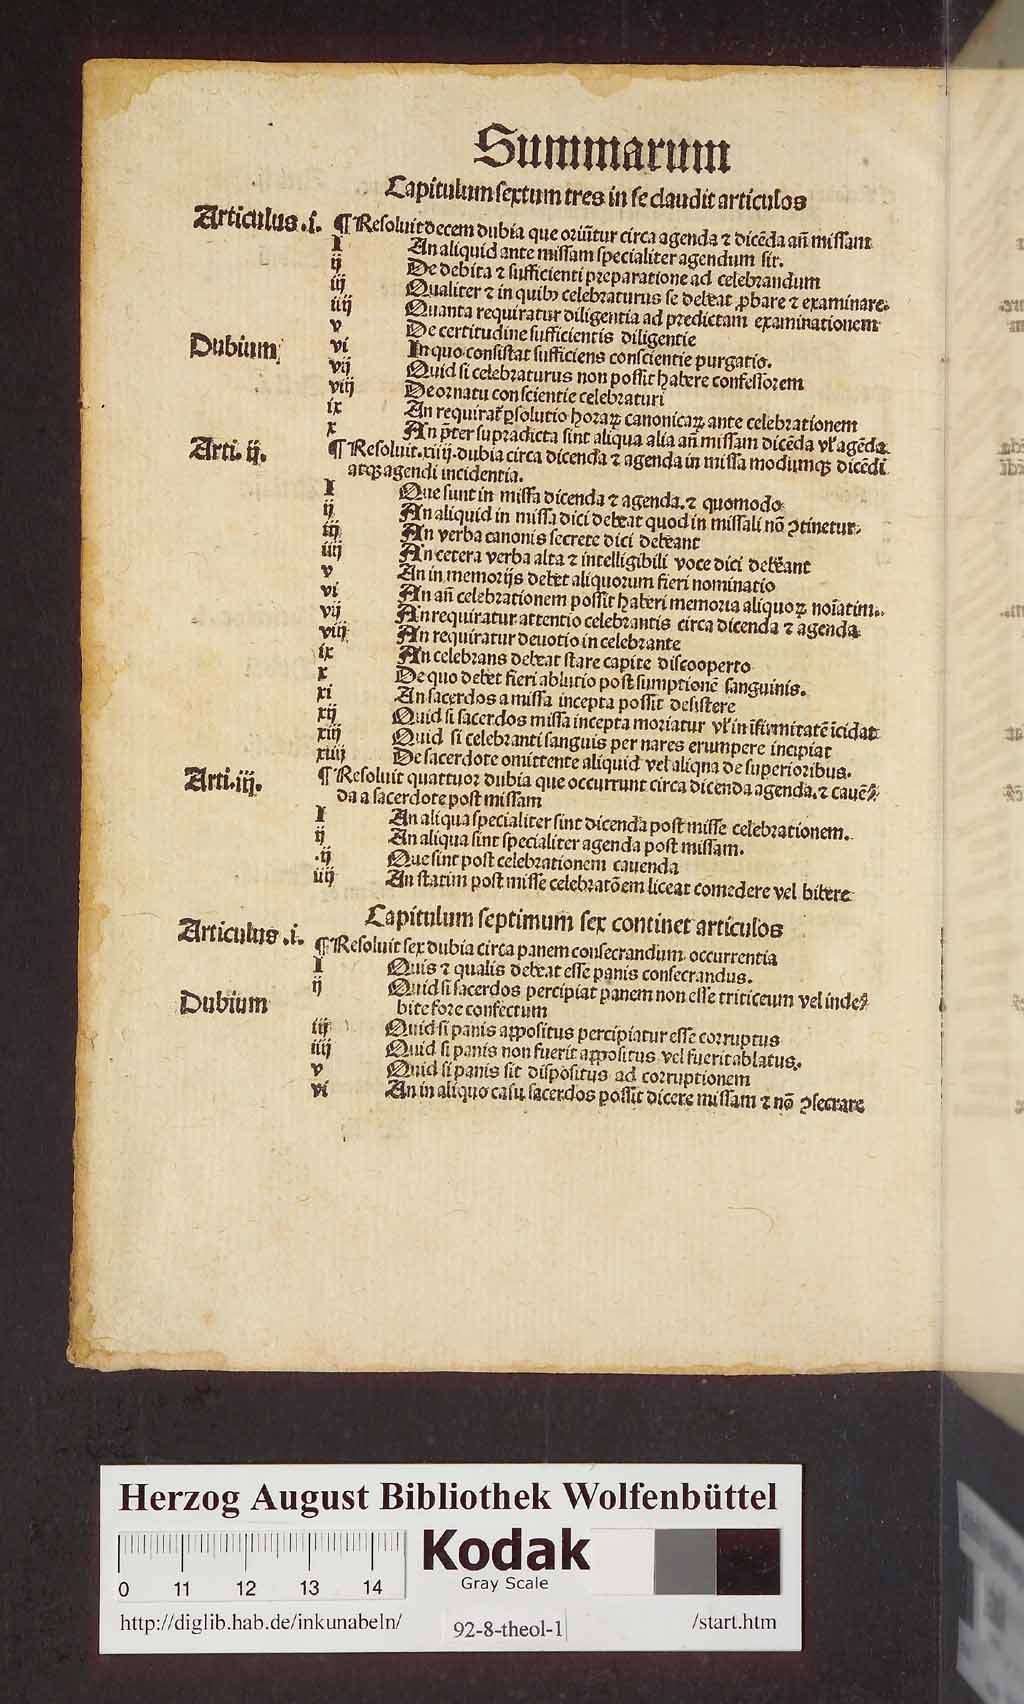 Summarum
Capitulum sextum tres in se claudit articulos
Articulus .i. ¶ Resoluit decem dubia que oriũtur circa agenda ⁊ dicẽda añ missam
I An aliquid ante missam specialiter agendum sit.
ij De debita ⁊ sufficienti preparatione ad celebrandum
iij Qualiter ⁊ in quibꝰ celebraturus se debeat ꝓbare ⁊ examinare.
iiij Quanta requiratur diligentia ad predictam examinationem
v De certitudine sufficientis diligentie
Dubium vi In quo consistat sufficiens conscientie purgatio.
vij Quid si celebraturus non possit habere confessorem
viij De ornatu conscientie celebraturi
ix An requirat᷑ ꝑsolutio horaꝝ canonicaꝝ ante celebrationem
x An p̃ter supradicta sint aliqua alia añ missam dicẽda vl̕ agẽda.
Arti. ij. ¶ Resoluit .xiiij. dubia circa dicenda ⁊ agenda in missa modumqꝫ dicẽdi
atqꝫ agendi incidentia.
I Que sunt in missa dicenda ⁊ agenda. ⁊ quomodo
ij An aliquid in missa dici debeat quod in missali nõ ꝯtinetur.
iij An verba canonis secrete dici debeant
iiij An cetera verba alta ⁊ intelligibili voce dici debeant
v An in memorijs debet aliquorum fieri nominatio
vi An añ celebrationem possit haberi memoria aliquoꝝ noĩatim.
vij An requiratur attentio celebrantis circa dicenda ⁊ agenda
viij An requiratur deuotio in celebrante
ix An celebrans debeat stare capite discooperto
x De quo debet fieri ablutio post sumptionẽ sanguinis.
xi An sacerdos a missa incepta possit desistere
xij Quid si sacerdos missa incepta moriatur vl̕ in ĩfirmitatẽ ĩcidat
xiij Quid si celebranti sanguis per nares erumpere incipiat
xiiij De sacerdote omittente aliquid vel aliqna de superioribus.
Arti. iij. ¶ Resoluit quattuor dubia que occurrunt circa dicenda agenda. ⁊ cauẽ⸗
da a sacerdote post missam
I An aliqua specialiter sint dicenda post misse celebrationem.
ij An aliqua sint specialiter agenda post missam.
.ij Que sint post celebrationem cauenda
iiij An statim post misse celebratõem liceat comedere vel bibere
Capitulum septimum sex continet articulos
Articulus .i. ¶ Resoluit sex dubia circa panem consecrandum occurrentia
I Quis ⁊ qualis debeat esse panis consecrandus.
Dubium ij Quid si sacerdos percipiat panem non esse triticeum vel inde⸗
bite fore confectum
iij Quid si panis appositus percipiatur esse corruptus
iiij Quid si panis non fuerit appositus vel fuerit ablatus.
v Quid si panis sit dispositus ad corruptionem
vi An in aliquo casu sacerdos possit dicere missam ⁊ nõ ꝯsecrare
Herzog August Bibliothek Wolfenbüttel
Kodak
Gray Scale
0 11 12 13 14
http://diglib.hab.de/inkunabeln/ 92-8-theol-1 /start.htm